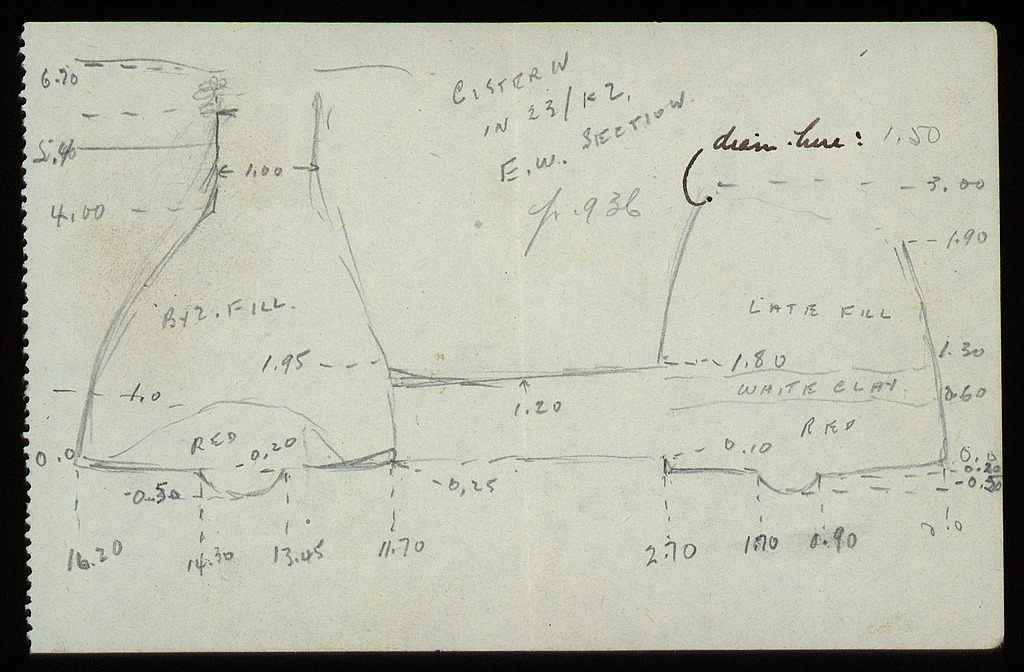 CISTERN
IN 23/K2,
E.W. SECTION
p. 936
drain here: 1.50
6.70
5.40
1.00
4.00
3.00
1.90
BYZ. FILL.
LATE FILL
1.95
1.80
1.30
1.0
1.20
WHITE CLAY
0.60
RED
-0.20
RED
0.0
0.10
0.0
-0.20
-0.50
-0.25
-0.50
16.20
14.30
13.45
11.70
2.70
1.70
0.90
0.0